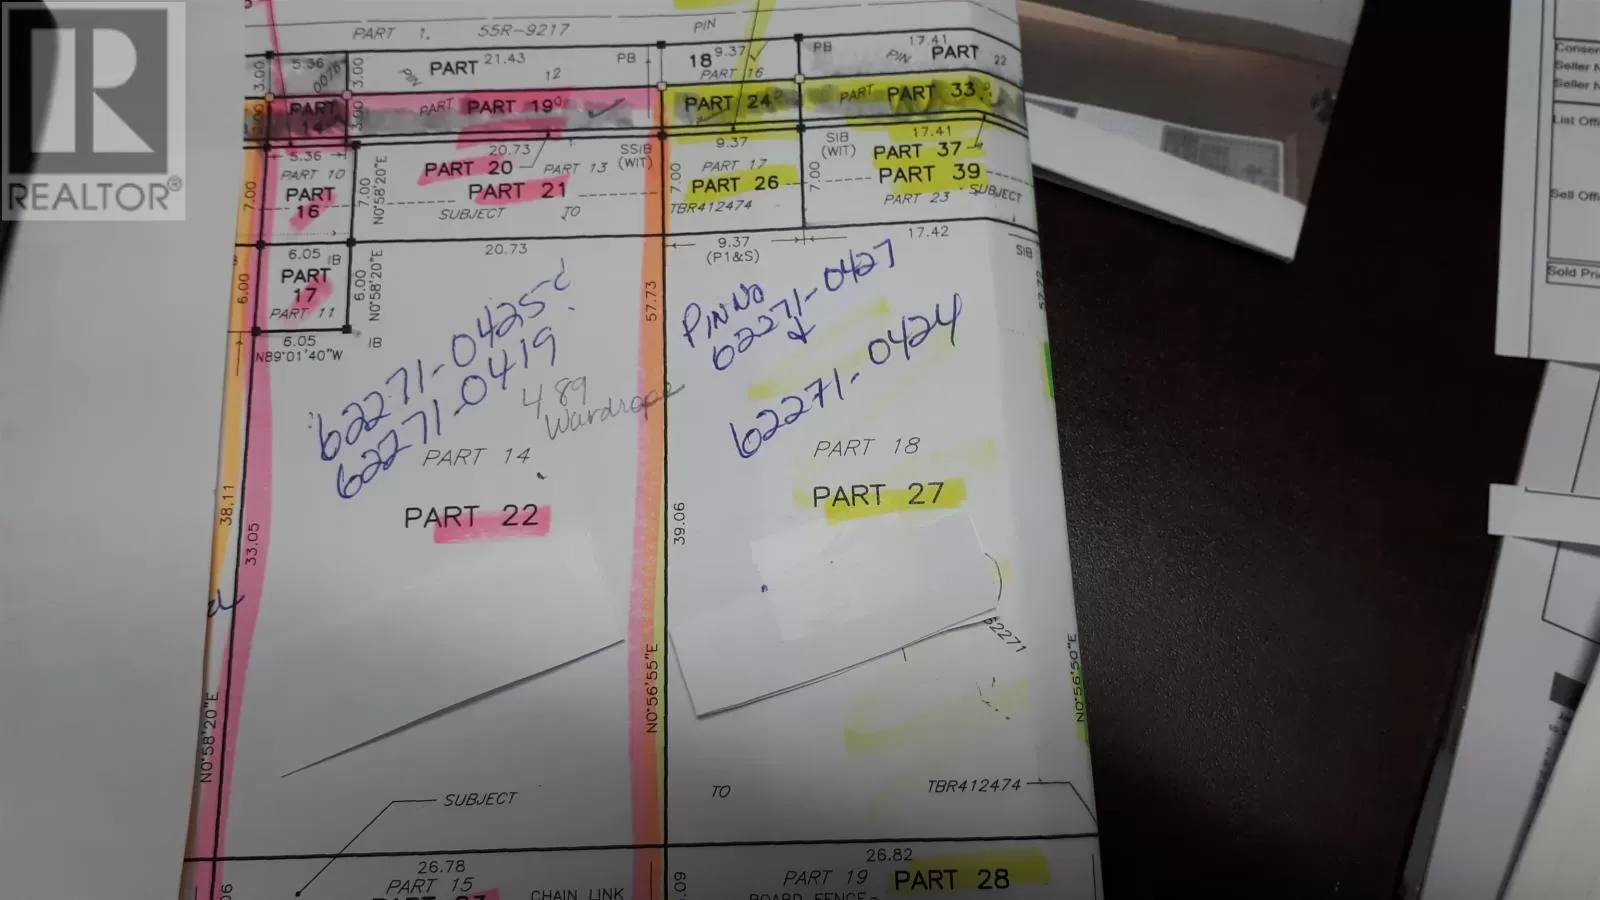 REALTOR®
PART 1, 55R-9217
PIN
5.36
3.00
0076
3.00
PIN
PART 21.43
12
PB
18 9.37
PART 16
PB
17.41
PIN PART 22
PART 14
3.00
3.00
PART PART 19
PART 24
PART PART 33
5.36
PART 10
PART
16
7.00
7.00
N0°58'20"E
20.73
PART 20
PART 13
PART 21
SUBJECT TO
SSIB
(WIT)
9.37
7.00
PART 17
PART 26
TBR412474
SIB
(WIT)
7.00
17.41
PART 37
PART 39
PART 23
SUBJECT
6.05 IB
PART
17
PART 11
6.00
6.00
N0°58'20"E
6.05
N89°01'40"W
IB
20.73
9.37
(P1&S)
17.42
SIB
57.73
62271-0425 &
62271-0419
489
Wardrope
PIN No
62271-0427
&
62271-0424
PART 14
PART 22
PART 18
PART 27
38.11
33.05
39.06
&
62271
N0°58'20"E
N0°56'55"E
N0°56'50"E
SUBJECT
TO
TBR412474
26.78
PART 15
CHAIN LINK
26.82
PART 19
PART 28
BOARD FENCE
.09
Seller N
Seller N
List Offi
Sell Offi
Sold Pri